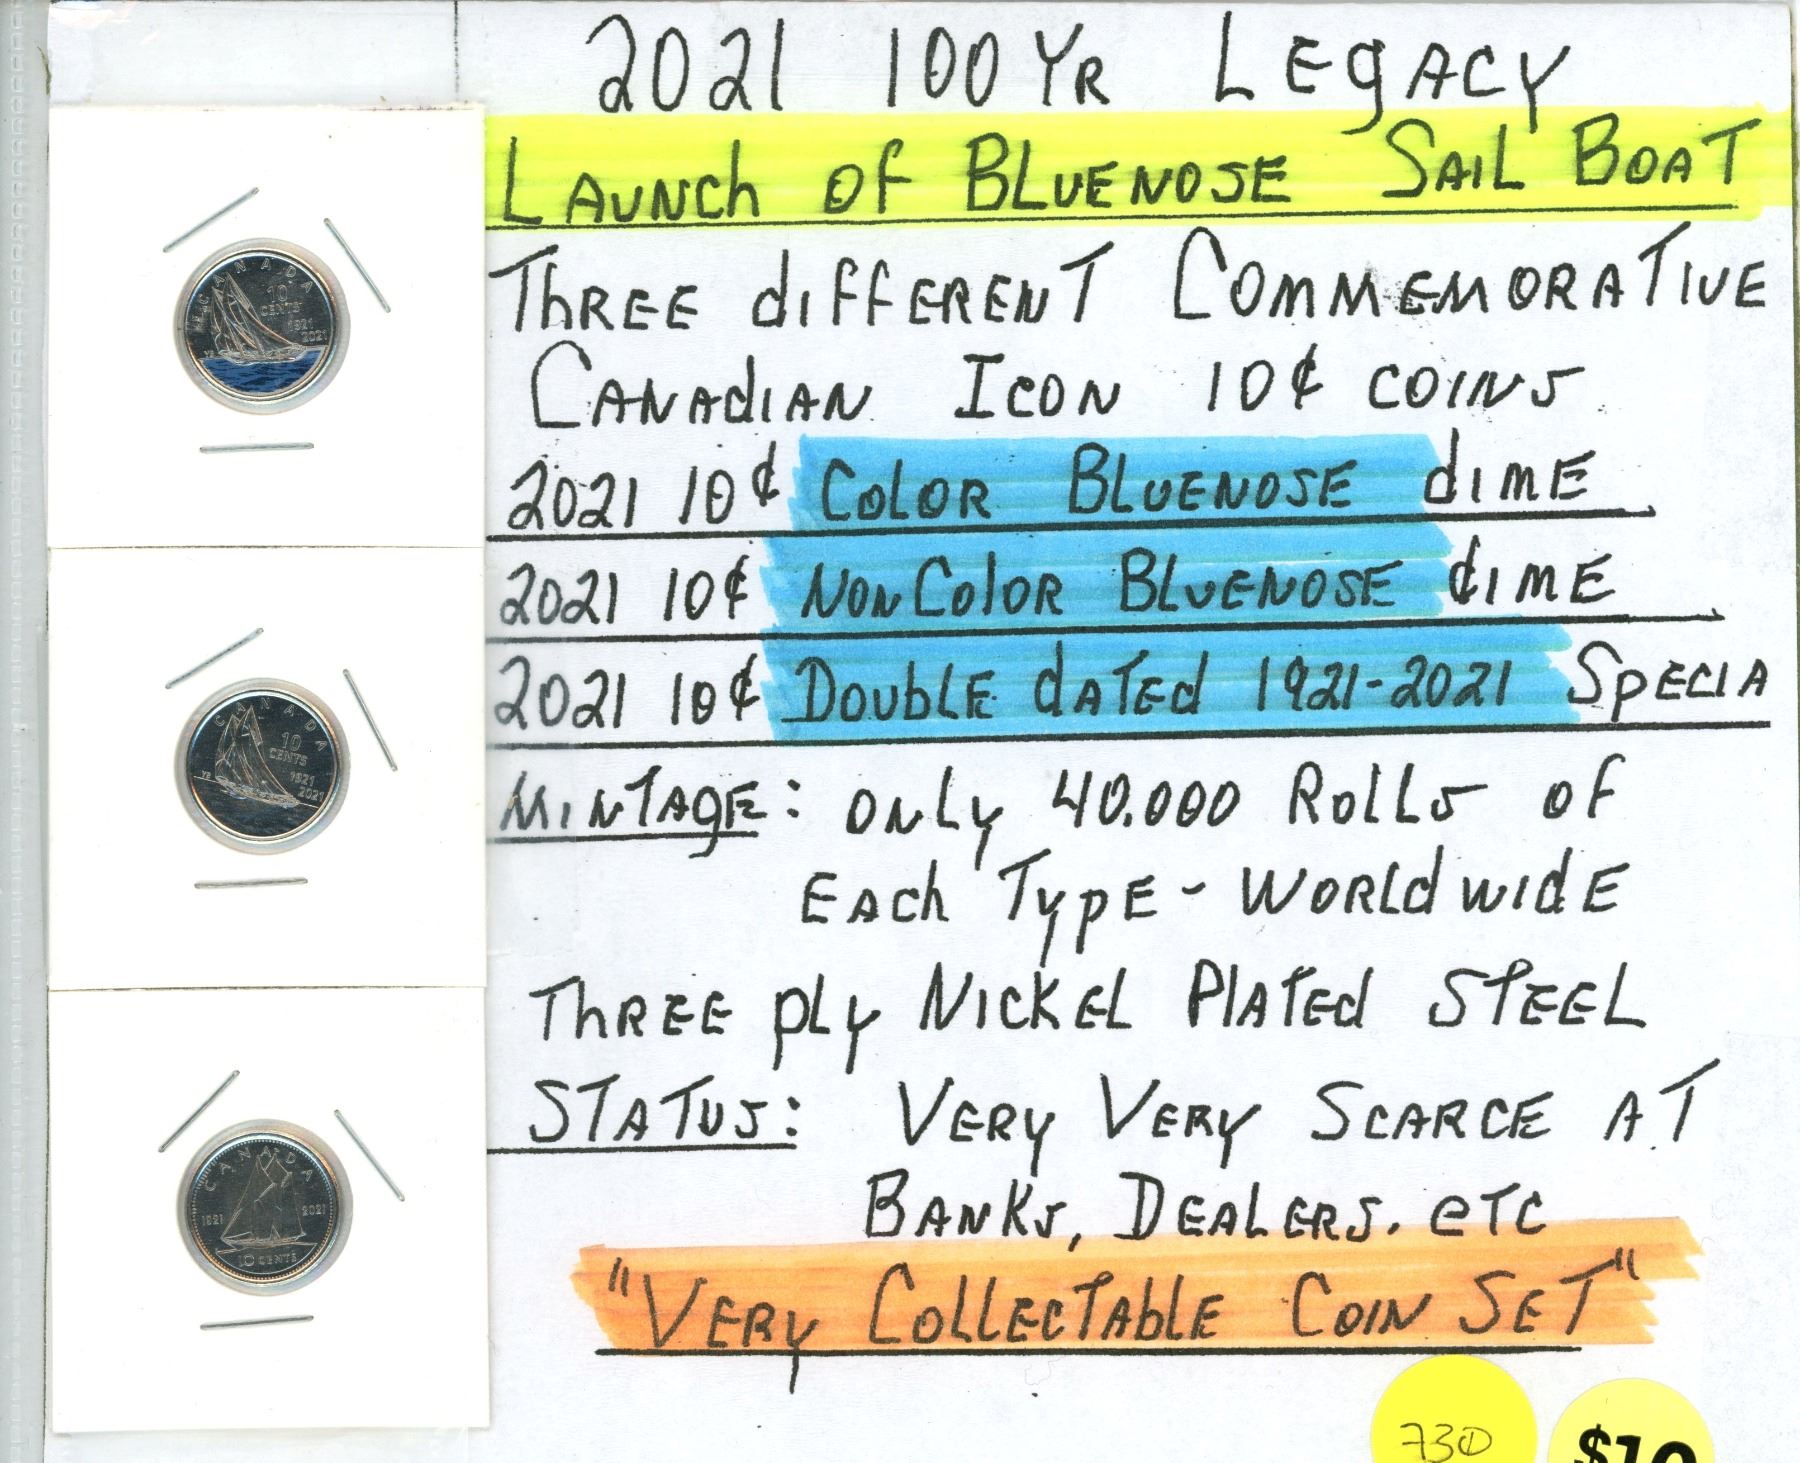 2021 100 YR LEGACY
LAUNCH OF BLUENOSE SAIL BOAT
THREE dIFFERENT COMMEMORATIVE
CANAdIAN ICON 10¢ COINS
2021 10¢ COLOR BLUENOSE dIME
2021 10¢ NONCOLOR BLUENOSE dIME
2021 10¢ DOUBLE dATEd 1921-2021 SPECIA
MINTAGE: ONLY 40.000 ROLLS OF
EACh TYPE - WORLdWIdE
THREE PLY NICKEL PLATEd STEEL
STATUS: VERY VERY SCARCE AT
BANKS, DEALERS. eTC
"VERY COLLECTABLE COIN SET"
730
$10
CANADA
10
CENTS
1921
2021
YB
CANADA
10
CENTS
1921
2021
YB
CANADA
1921 2021
10 CENTS